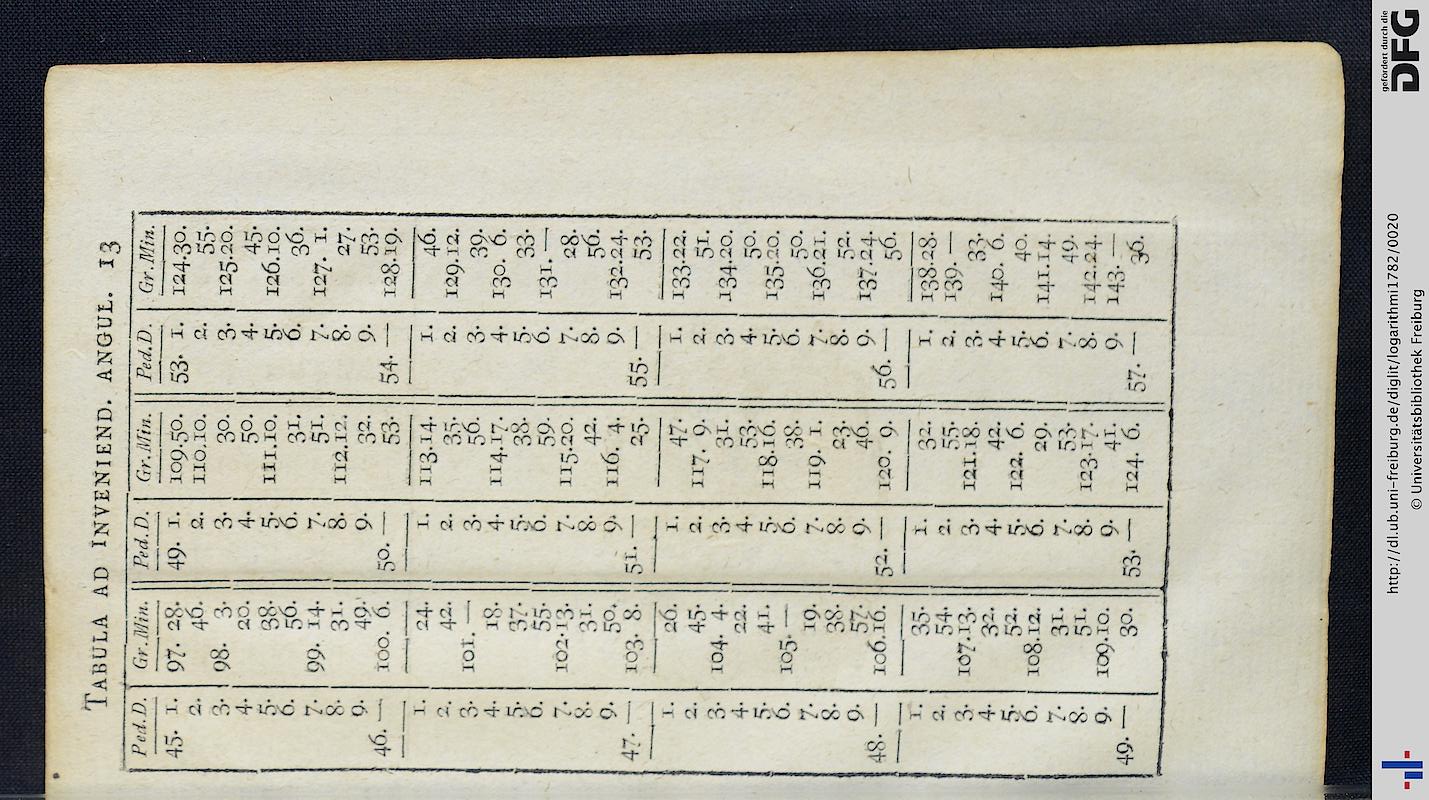 TABULA AD INVENIEND. ANGUL. 13
Ped.D. Gr.Min. Ped.D. Gr.Min. Ped.D. Gr.Min.
45. 1. 97. 28. 49. 1. 109.50. 53. 1. 124.30.
2. 46. 2. 110.10. 2. 55.
3. 98. 3. 3. 30. 3. 125.20.
4. 20. 4. 50. 4. 45.
5. 38. 5. 111.10. 5. 126.10.
6. 56. 6. 31. 6. 36.
7. 99. 14. 7. 51. 7. 127. 1.
8. 31. 8. 112.12. 8. 27.
9. 49. 9. 32. 9. 53.
46. — 100. 6. 50. — 53. 54. — 128.19.
1. 24. 1. 113.14. 1. 46.
2. 42. 2. 35. 2. 129.12.
3. 101. — 3. 56. 3. 39.
4. 18. 4. 114.17. 4. 130. 6.
5. 37. 5. 38. 5. 33.
6. 55. 6. 59. 6. 131. —
7. 102.13. 7. 115.20. 7. 28.
8. 31. 8. 42. 8. 56.
9. 50. 9. 116. 4. 9. 132.24.
47. — 103. 8. 51. — 25. 55. — 53.
1. 26. 1. 47. 1. 133.22.
2. 45. 2. 117. 9. 2. 51.
3. 104. 4. 3. 31. 3. 134.20.
4. 22. 4. 53. 4. 50.
5. 41. 5. 118.16. 5. 135.20.
6. 105. — 6. 38. 6. 50.
7. 19. 7. 119. 1. 7. 136.21.
8. 38. 8. 23. 8. 52.
9. 57. 9. 46. 9. 137.24.
48. — 106.16. 52. — 120. 9. 56. — 56.
1. 35. 1. 32. 1. 138.28.
2. 54. 2. 55. 2. 139. —
3. 107.13. 3. 121.18. 3. 33.
4. 32. 4. 42. 4. 140. 6.
5. 52. 5. 122. 6. 5. 40.
6. 108.12. 6. 29. 6. 141.14.
7. 31. 7. 53. 7. 49.
8. 51. 8. 123.17. 8. 142.24.
9. 109.10. 9. 41. 9. 143. —
49. — 30. 53. — 124. 6. 57. — 36.
http://dl.ub.uni-freiburg.de/diglit/logarithmi1782/0020
© Universitätsbibliothek Freiburg
gefördert durch die
DFG